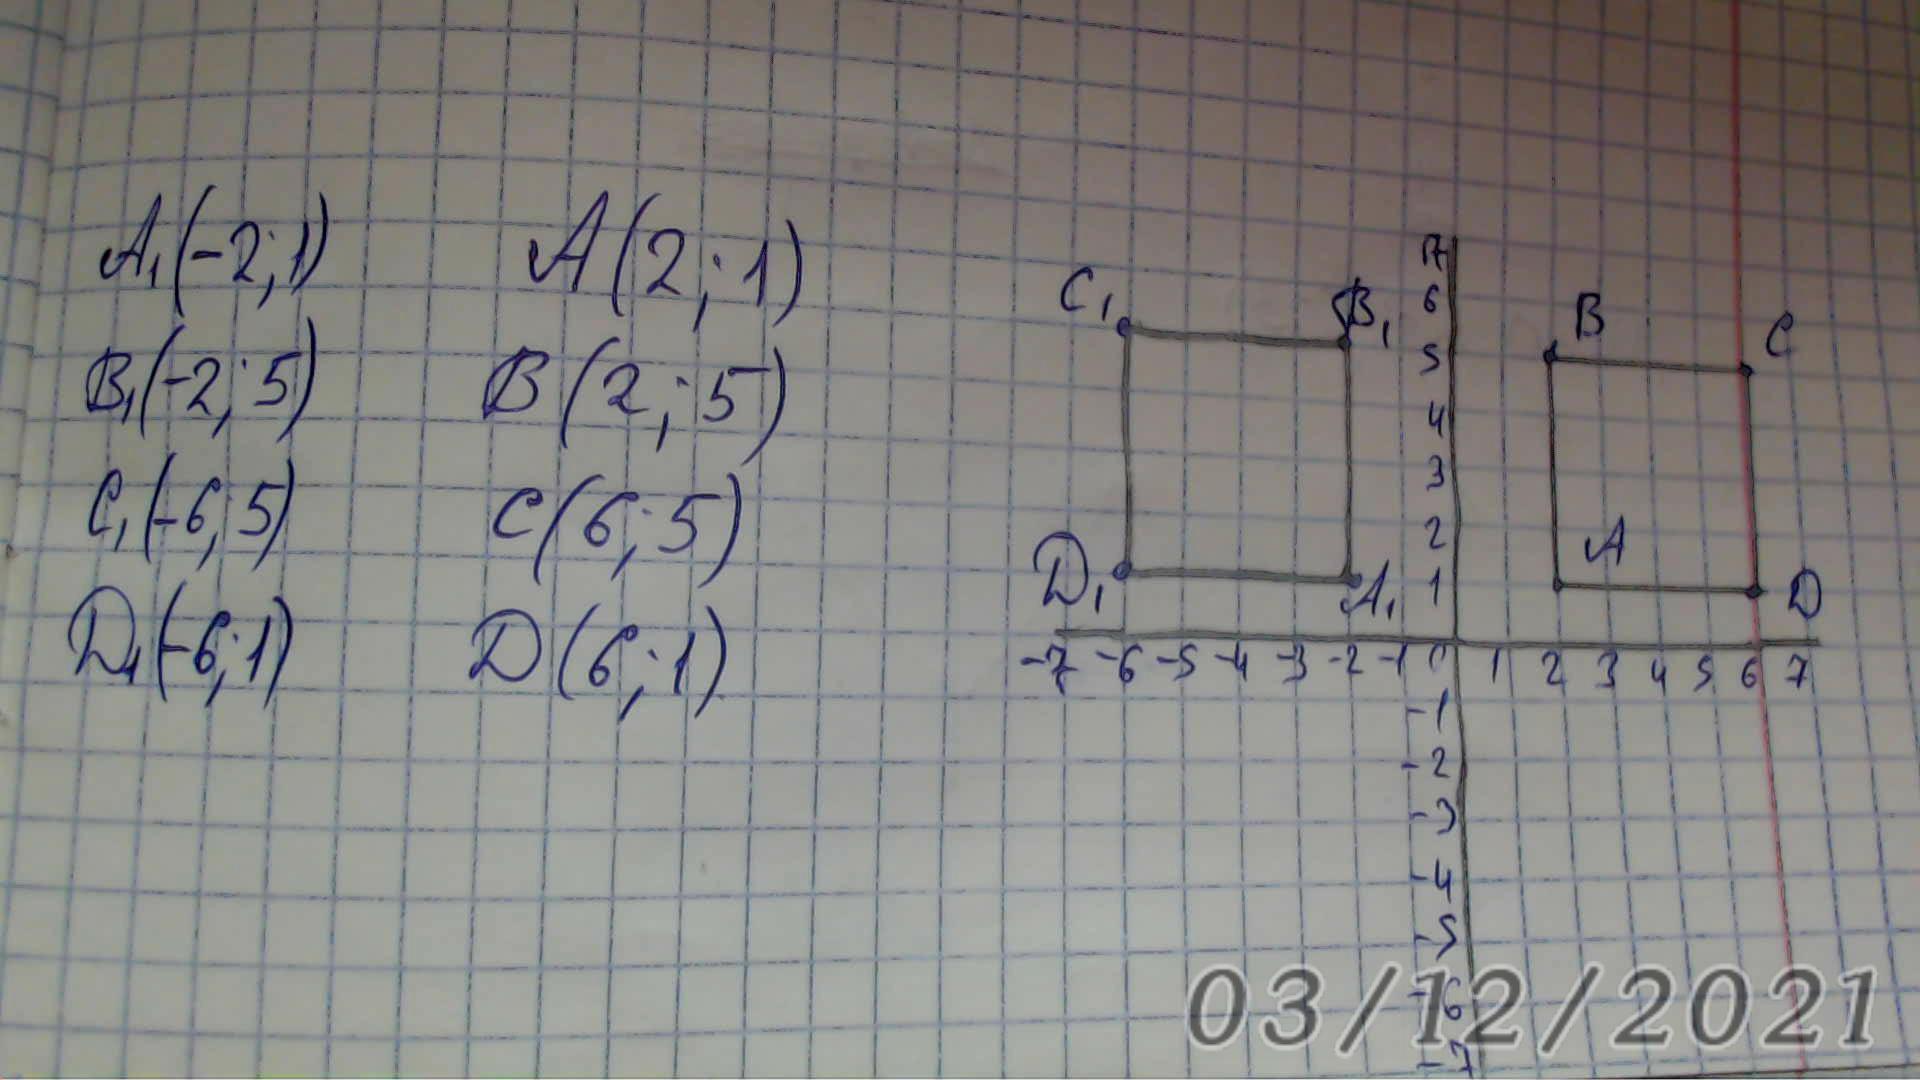 A₁(-2;1) A(2;1)
B₁(-2;5) B(2;5)
C₁(-6;5) C(6;5)
D₁(-6;1) D(6;1)
7
C₁ B₁ 6 B C
5
4
3
2 A
D₁ A₁ 1 D
-7 -6 -5 -4 -3 -2 -1 0 1 2 3 4 5 6 7
-1
-2
-3
-4
-5
-6
-7
03/12/2021